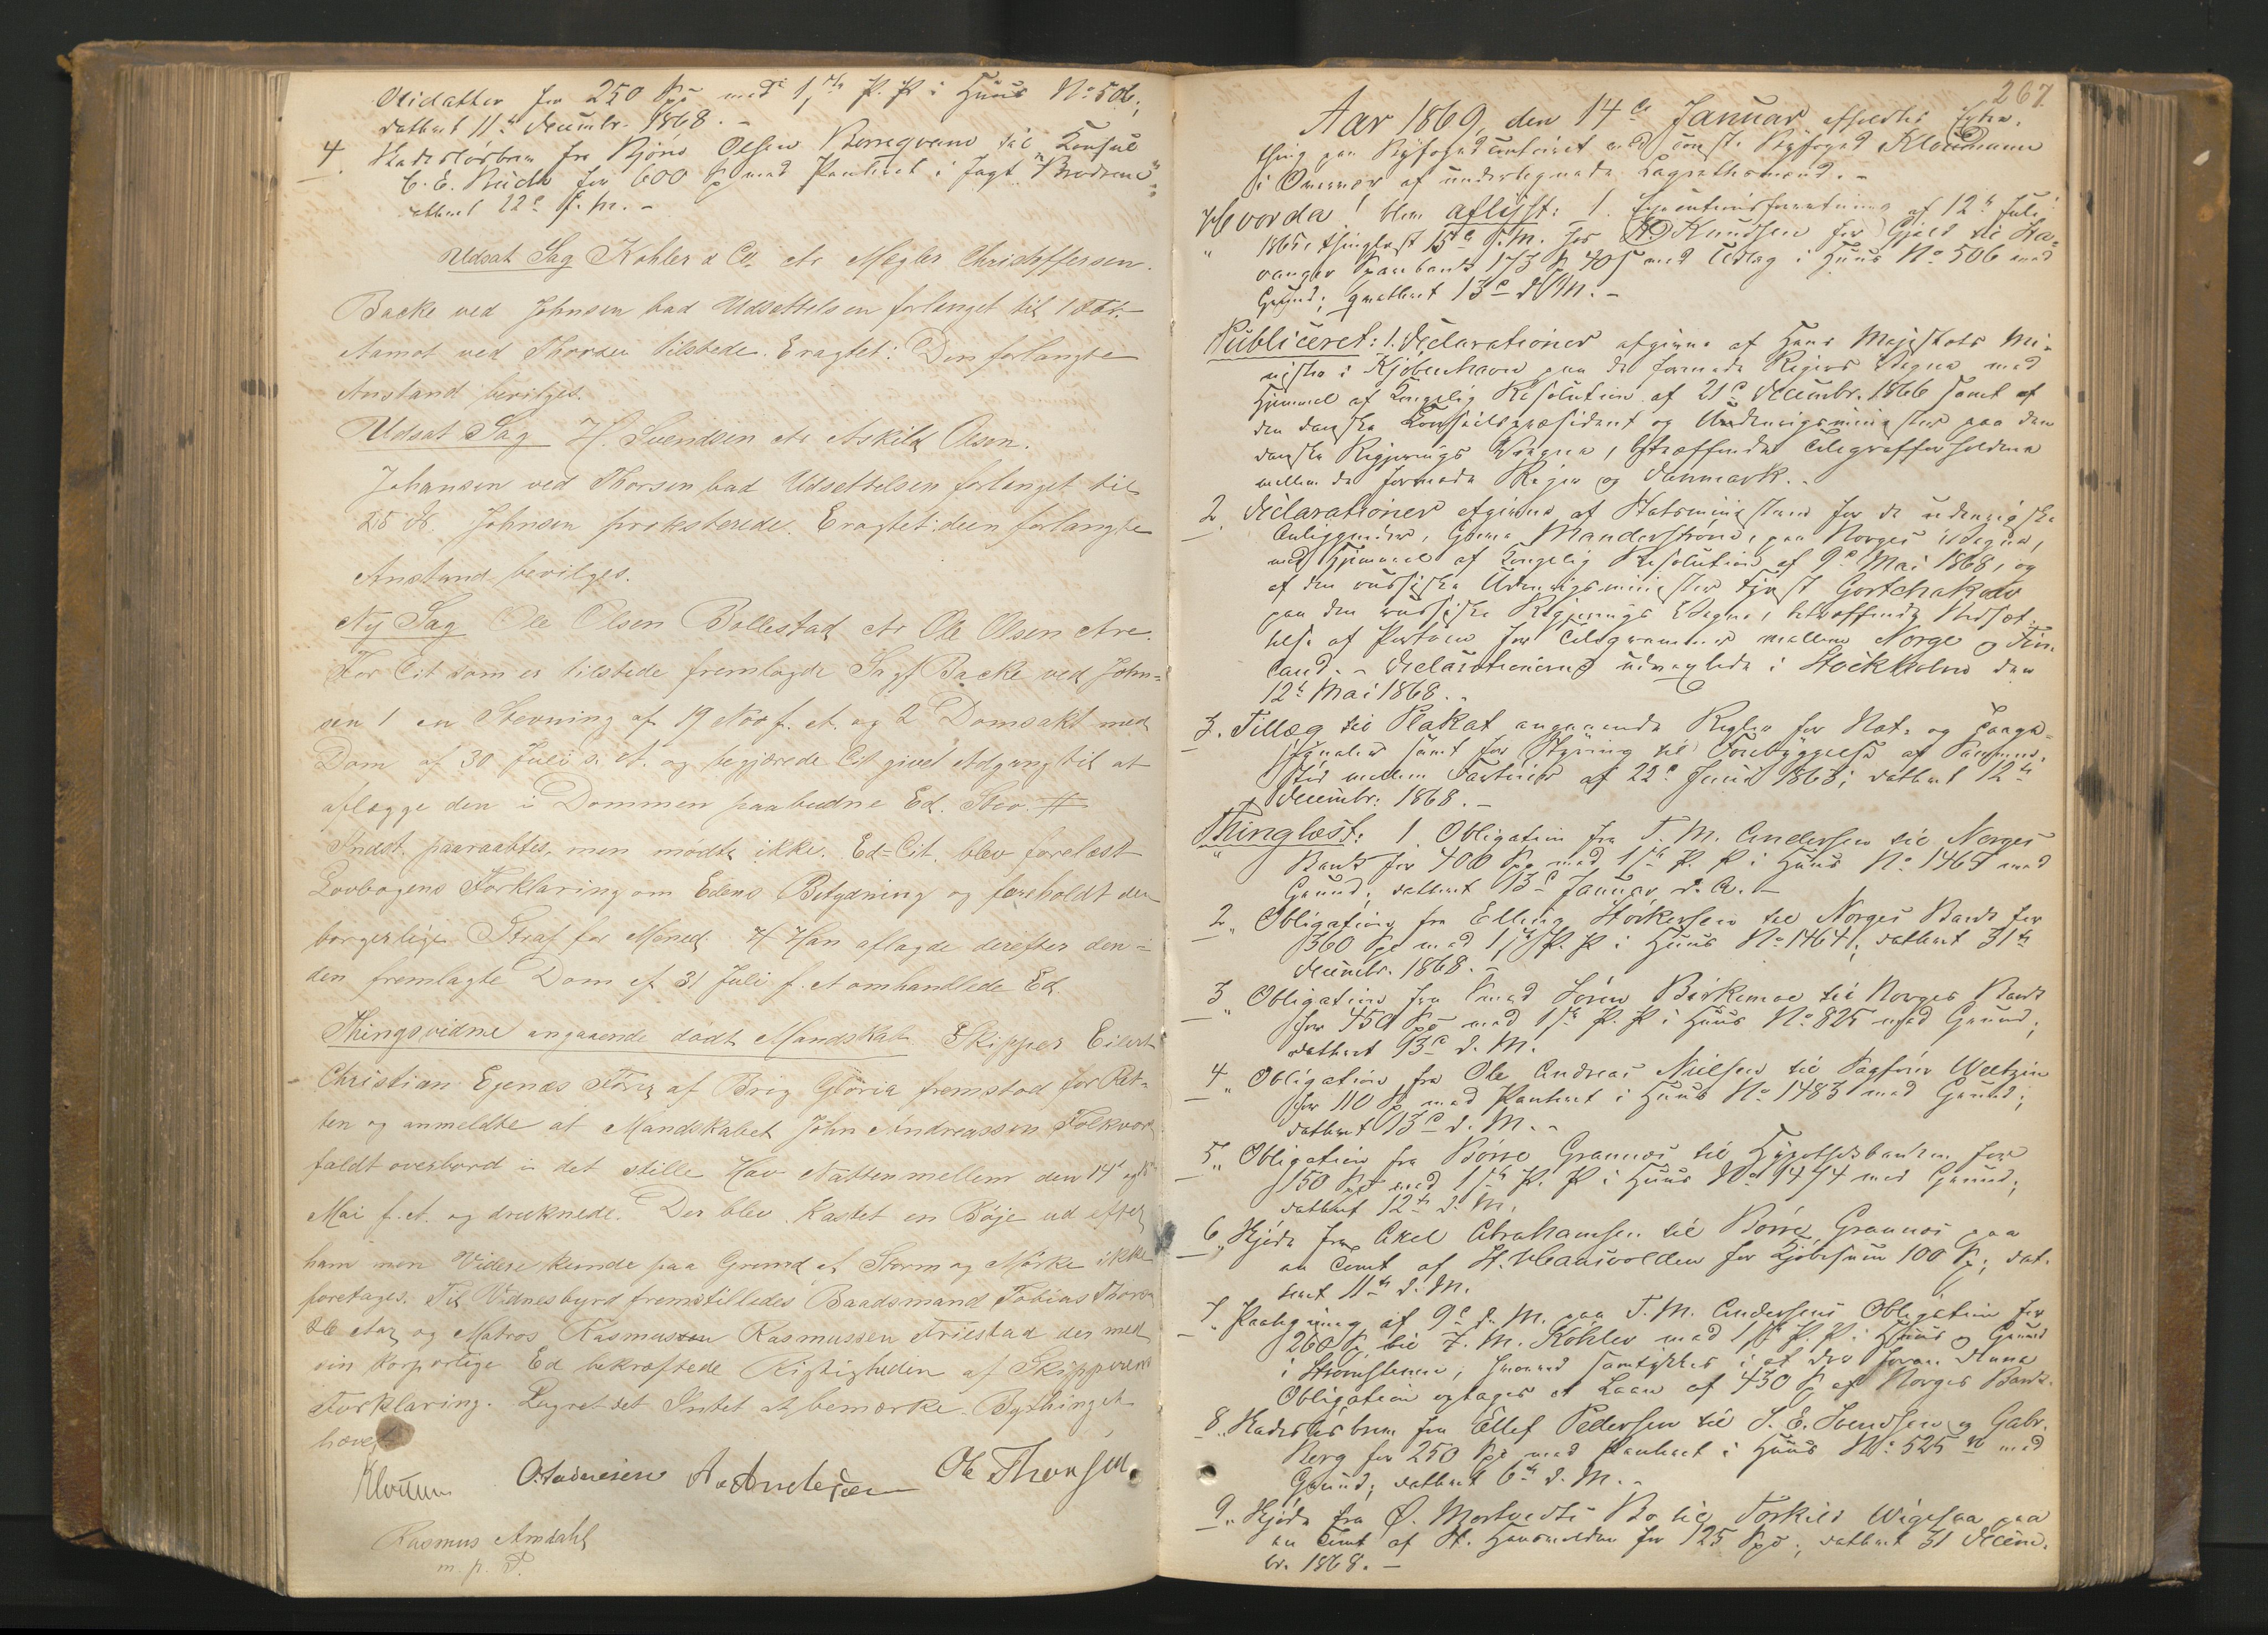 Olidatter for 250 Spd med 1ste P. P. i Huus No 506,
datteret 11te Decembr. 1868. -
4. Skadesløsbrev fra Bjørn Olsen Berreqvam til Konsul
C. E. Buch for 600 Sp med Panteret i Jagt "Brødrene";
datteret 22de f. M. -
Udsat Sag Kohler & Co. Ar Mægler Christoffersen.
Backe ved Johnsen bad Udsættelsen forlænget til
Aamot ved Thorsen tilstede. Eragtet: Den forlangte
Anstand bevilges.
Udsat Sag H. Svendsen Ar Askild Olsen.
Johansen ved Thorsen bad Udsettelsen forlænget til
25 Johnsen protesterede. Eragtet: den forlangte
Anstand bevilges.
Ny Sag Ole Olsen Bollestad Ar Ole Olsen Are.
For Cit som er tilstede fremlagde Sagf Backe ved John=
sen 1 en Stevning af 19 Nov f. A. og 2 Domsakt med
Dom af 30 Juli s. A. og begjærede Cit givet Adgang til at
aflægge den i Dommen paabudne Ed. #
Indst. paaraabtes, men mødte ikke. Ed=Cit. blev forelæst
Lovbogens Forklaring om Edens Betydning og foreholdt den
borgerlige Straf for Mened. # Han aflagde derefter den i
den fremlagte Dom af 31 Juli f. A omhandlede Ed.
Thingsvidne angaaende dødt Mandskab. Skipper Eilert
Christian Egenæs af Brig Gloria fremstod for Ret-
ten og anmeldte at Mandskabet John Andreassen Folkvor
faldt overbord i det stille Hav Natten mellem den 14de og 15de
Mai f. A. og druknede. Der blev kastet en Bøje ud efter
ham men Videre kunde paa Grund af Storm og Mørke ikke
foretages. Til Vidnesbyrd fremstilledes Baadsmand Tobias Thorsen
26 Aar og Matros Rasmus Rasmussen Friestad der med
sin korporlige Ed bekræftede Rigtigheden af Skipperens
Forklaring. Lagret det Intet at bemærke. Bythinget
hævet
Kloumann A. Andersen Ole Thorsen.
Rasmus Amdahl
m. p. P.
267.
Aar 1869, den 14de Januar afholdtes Extra-
thing paa Byfogedcontoiret ved const. Byfoged Kloumann
i Overvær af undertegnede Laugrettesmænd. -
Hvorda! blev aflyst: 1. Executionsforretning af 12te Juli
1865, thinglæst 13de s. M. hos H. Knudsen for Gjeld til Sta-
vanger Sparebank 173 Sp 40 s med Udlæg i Huus No 506 med
Grund; qvitteret 13de d. M. -
Publiceret: 1. Declarationer afgivne af Hans Majestæts Mi-
nister i Kjøbenhavn paa de forenede Rigers Vegne med
Hjemmel af Kongelig Resolution af 21de Decembr. 1866 samt af
den danske Conseilspræsident og Udenrigsminister paa den
danske Regjerings Vegne, betræffende Telegrafforholdene
mellem de forenede Riger og Danmark. -
2. Declarationer afgivne af Statsministeren for de udenrigske
Anliggender, Greve Manderstrøm, paa Norges Vegne,
med Hjemmel af Kongelig Resolution af 9de Mai 1868, og
af den russiske Udenrigsminister Fyrst Gortchakow
paa den russiske Regjerings Vegne, betræffende Nedsæt-
telse af Portoen for Telegrammer mellem Norge og Fin-
land. - Declarationerne udvexlede i Stockholm den
12te Mai 1868. -
3. Tillæg til Plakat angaaende Regler for Nat- og Taage-
signaler samt for Styring til Forebyggelse af Sammen-
stød mellem Fartøier af 22de Juni 1863; datteret 12te
Decembr. 1868. -
Thinglæst: 1. Obligation fra T. M. Andersen til Norges
Bank for 400 Spd med 1ste P. P. i Huus No 1467 med
Grund; datteret 13de Januar d. A. -
2. Obligation fra Elling Størkersen til Norges Bank for
360 Spd med 1ste P. P. i Huus No 1464; datteret 31te
Decembr. 1868. -
3. Obligation fra Smed Søren Birkemoe til Norges Bank
for 450 Spd med 1ste P. P. i Huus No 825 med Grund;
datteret 13de d. M.
4. Obligation fra Ole Andreas Nielsen til Sagfører Weltzin
for 110 Sp med Panteret i Huus No 1483 med Grund;
datteret 13de d. M. -
5. Obligation fra Børre Grannes til Hypothekbanken for
150 Spd med 1ste P. P. i Huus No 1474 med Grund;
datteret 12te d. M.
6. Skjøde fra Axel Abrahamsen til Børre Grannes paa
en Tomt af St. Hansvolden for Kjøbesum 100 Sp; dat-
teret 11te d. M.
7. Paategning af 9de d. M. paa T. M. Andersens Obligation for
260 Sp til F. M. Køhler med 1ste P. P. i Huus og Grund
i Strømstenen, hvorved samtykkes i at der foran denne
Obligation optages et Laan af 430 Sp af Norges Bank.
8. Skadesløsbrev fra Ellef Pedersen til S. E. Svendsen og Gabr.
Berg for 250 Spd med Panteret i Huus No 525 b med
Grund; datteret 6te d. M. -
9. Skjøde fra Ø. Mortvedts Bo til Torkild Wigestraa paa
en Tomt af St. Hansvolden for 125 Spd; datteret 31 Decem-
br. 1868. -